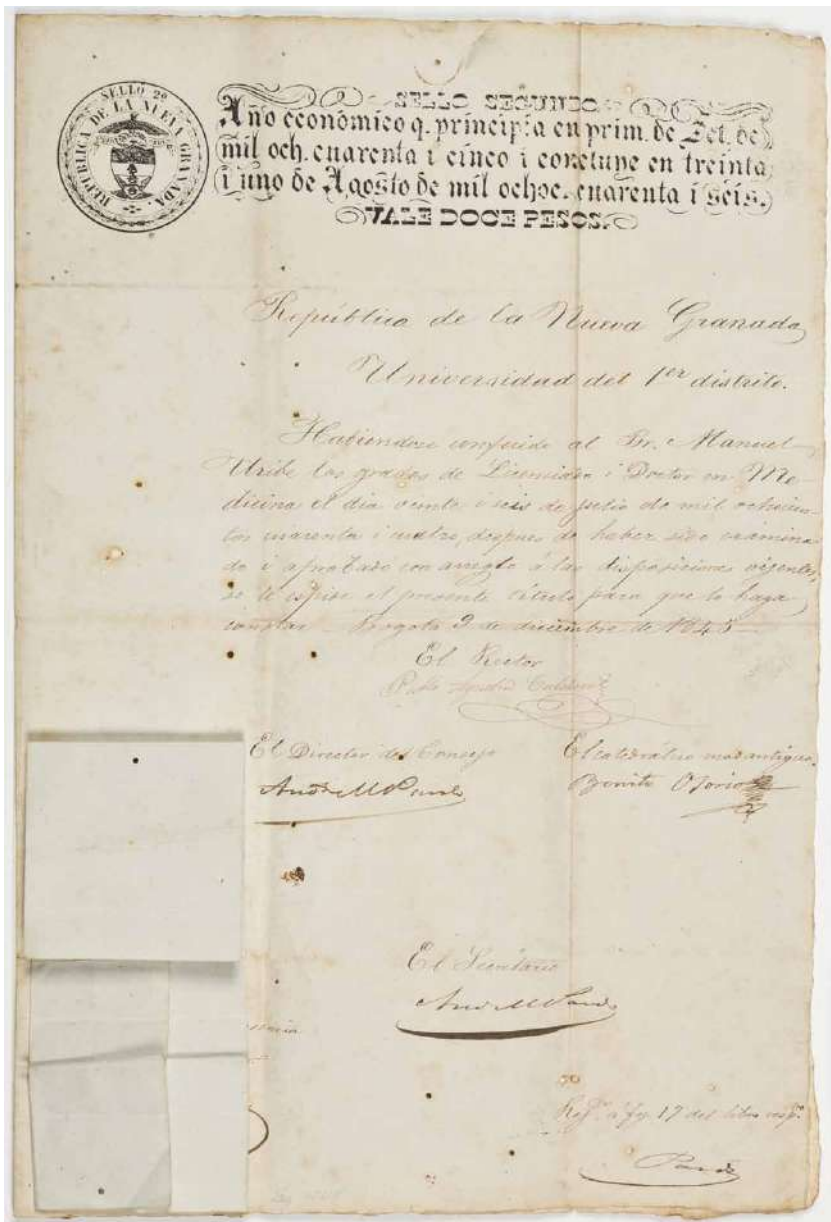 SELLO 2º
REPUBLICA DE LA NUEVA GRANADA
SELLO SEGUNDO
Año económico q. principia en prim. de Set. de
mil och. cuarenta i cinco i concluye en treinta
i uno de Agosto de mil ochoc. cuarenta i seis.
VALE DOCE PESOS.
República de la Nueva Granada
Universidad del 1er distrito.
Habiendose conferido al Sr. Manuel
Uribe los grados de Licenciado i Doctor en Me-
dicina el dia veinte i seis de julio de mil ochocien-
tos cuarenta i cuatro, despues de haber sido examina-
do i aprobado con arreglo á las disposiciones vijentes,
se le espide el presente título para que lo haga
constar. Bogotá 9 de diciembre de 1845
El Rector
Pablo Calderon
El Director del Consejo
El catedrático mas antiguo.
Andr M Pardo
Benito Osorio
El Secretario
Andr M Pardo
Rejº. á fs. 17 del libro resp.
Pardo